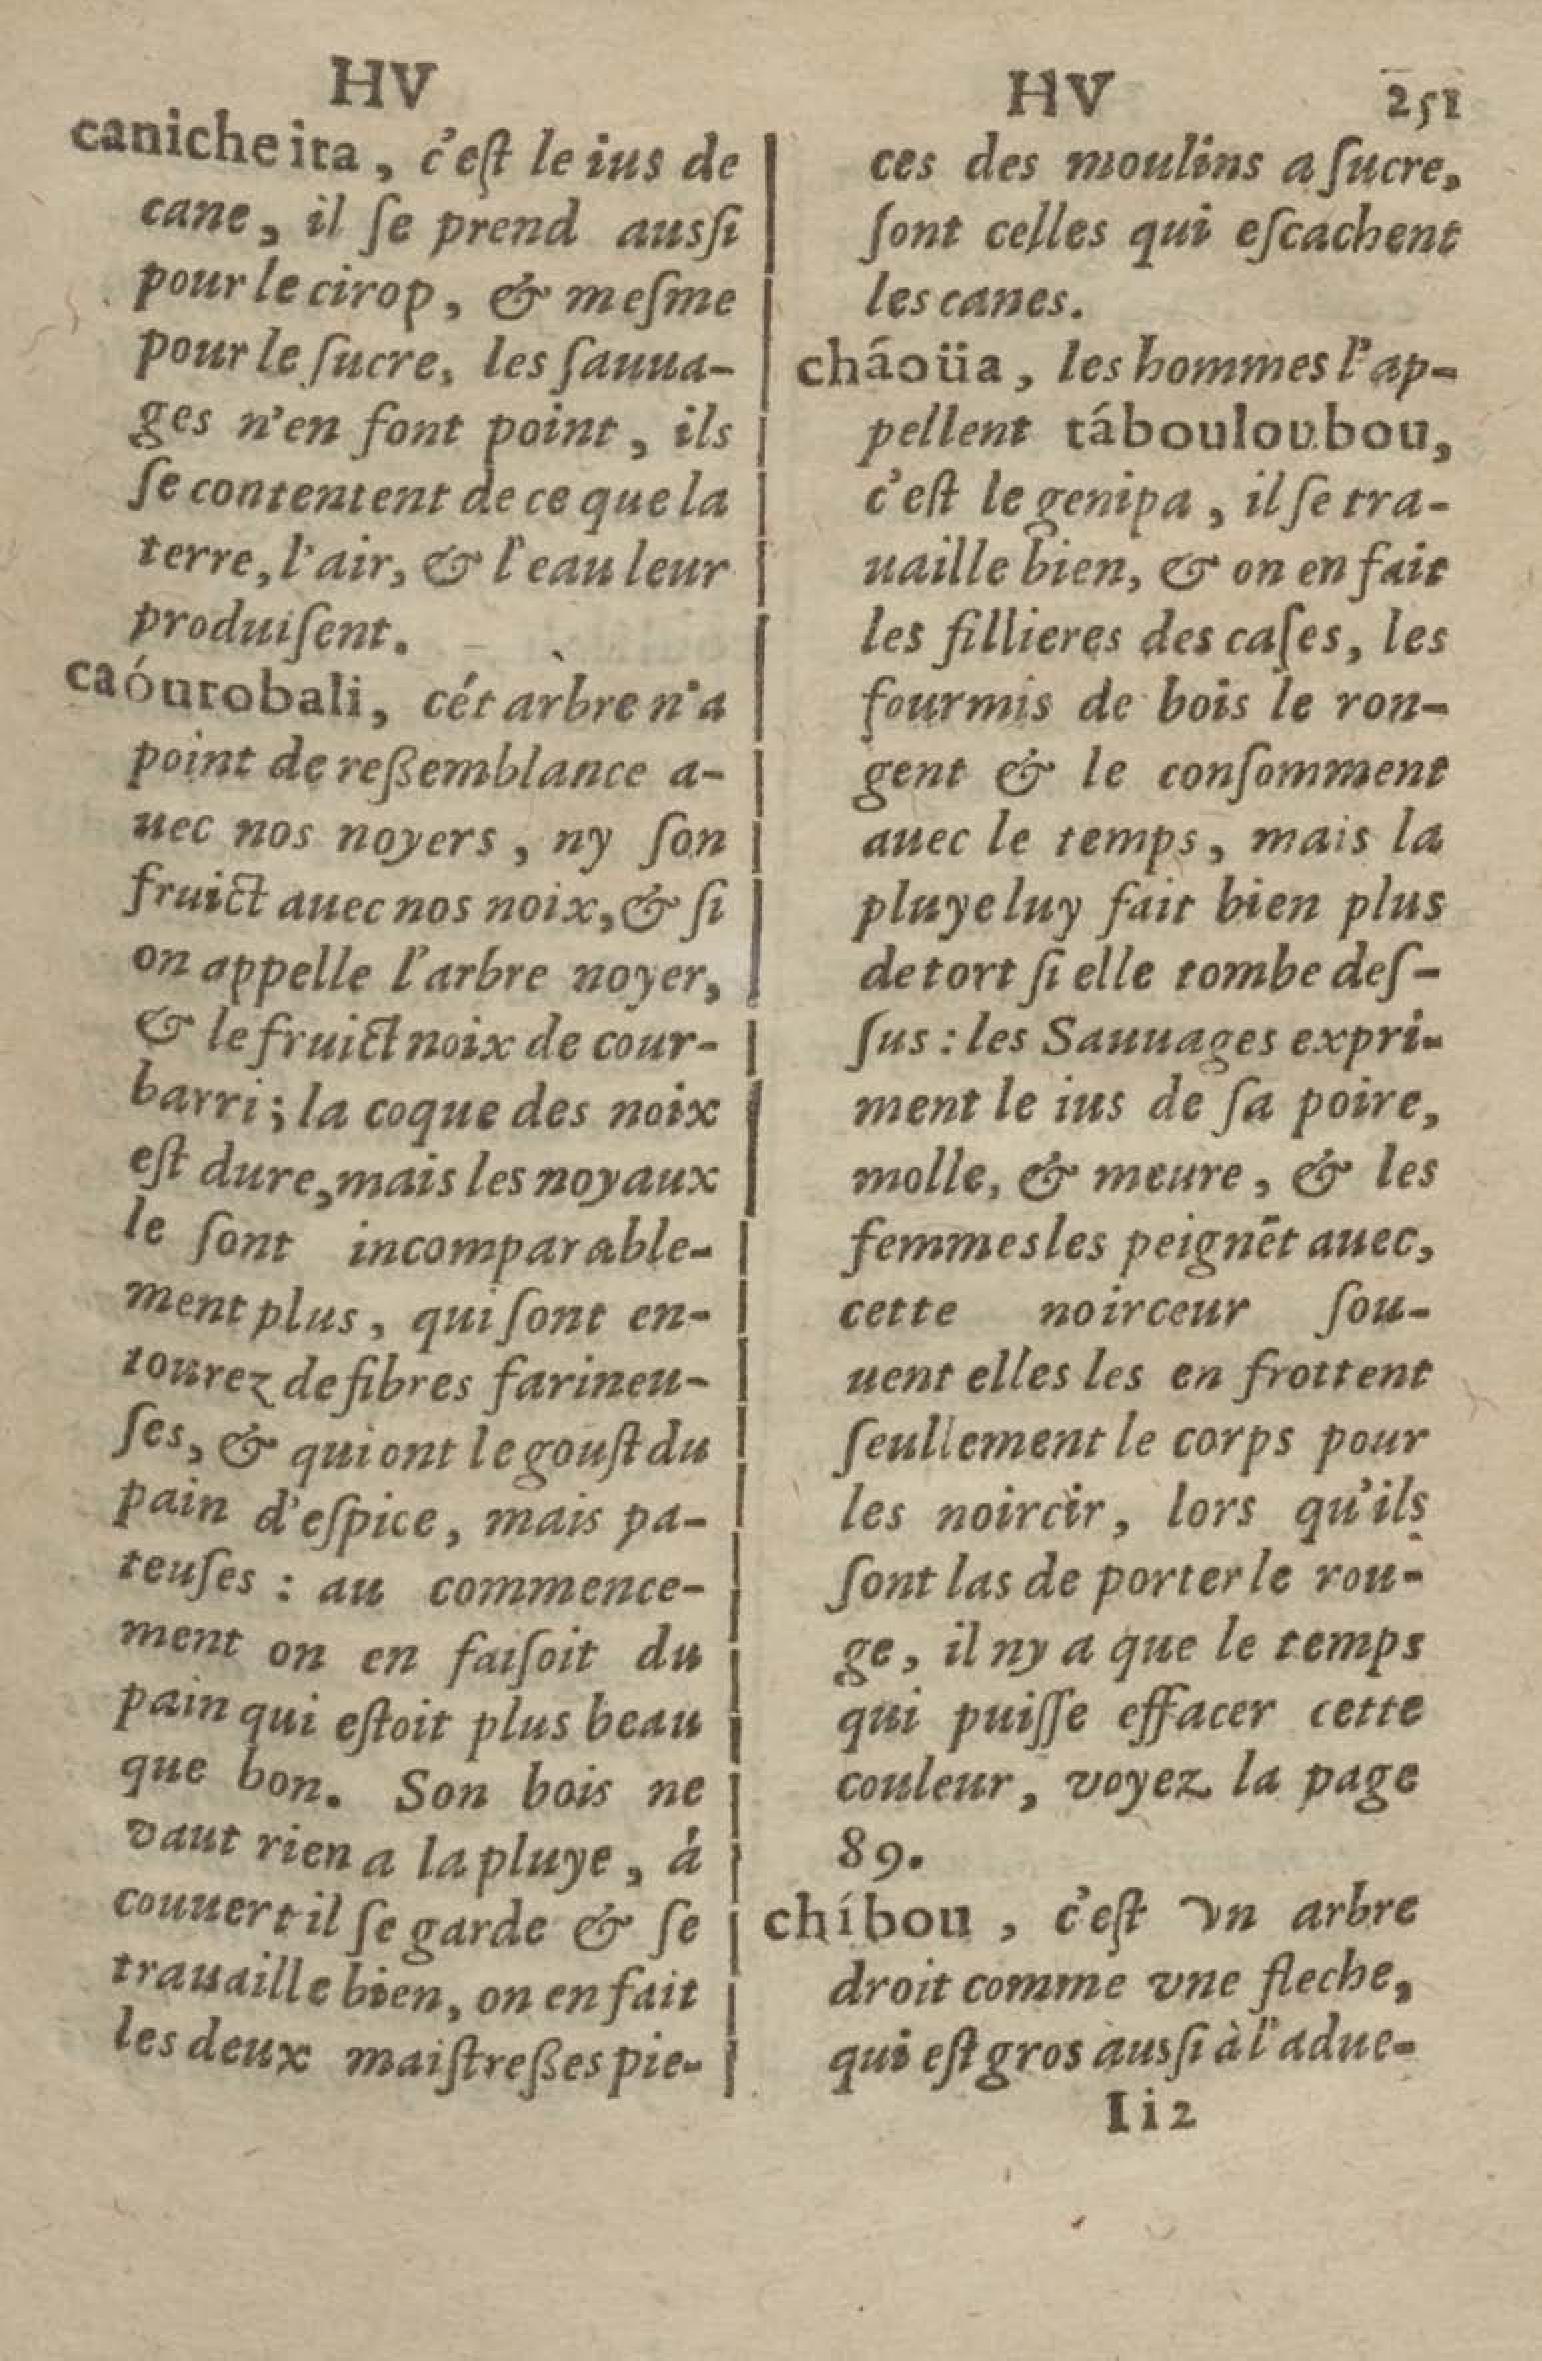 HV
canicheira, c'eſt le ius de
cane, il ſe prend ausſi
pour le cirop, & meſme
pour le ſucre, les ſauua-
ges n'en font point, ils
ſe contentent de ce que la
terre, l'air, & l'eau leur
produiſent.
caóurobali, cét arbre n'a
point de reßemblance a-
uec nos noyers, ny ſon
fruict auec nos noix, & ſi
on appelle l'arbre noyer,
& le fruict noix de cour-
barri; la coque des noix
eſt dure, mais les noyaux
le ſont incomparable-
ment plus, qui ſont en-
tourez de fibres farineu-
ſes, & qui ont le gouſt du
pain d'eſpice, mais pa-
teuſes : au commence-
ment on en faiſoit du
pain qui eſtoit plus beau
que bon. Son bois ne
vaut rien a la pluye, à
couuert il ſe garde & ſe
trauaille bien, on en fait
les deux maiſtreßes pie-
HV 251
ces des moulins a ſucre,
ſont celles qui eſcachent
les canes.
cháoüa, les hommes l'ap-
pellent tábouloubou,
c'eſt le genipa, il ſe tra-
uaille bien, & on en fait
les fillieres des caſes, les
fourmis de bois le ron-
gent & le conſomment
auec le temps, mais la
pluye luy fait bien plus
de tort ſi elle tombe deſ-
ſus : les Sauuages expri-
ment le ius de ſa poire,
molle, & meure, & les
femmes les peignēt auec,
cette noirceur ſou-
uent elles les en frottent
ſeullement le corps pour
les noircir, lors qu'ils
ſont las de porter le rou-
ge, il ny a que le temps
qui puiſſe effacer cette
couleur, voyez la page
89.
chíbou, c'eſt vn arbre
droit comme vne fleche,
qui eſt gros ausſi à l'adue-
Ii2